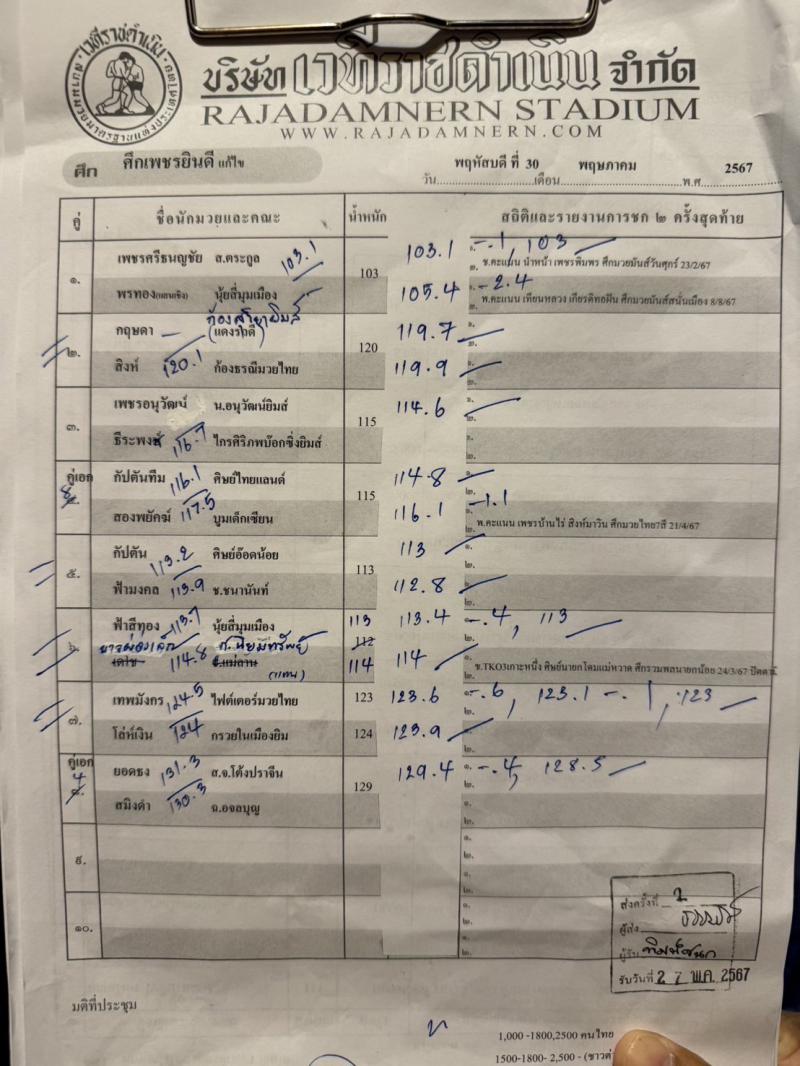 เวทีราชดำเนิน
สนามมวยมาตรฐานแห่งประเทศไทย
บริษัท เวทีราชดำเนิน จำกัด
RAJADAMNERN STADIUM
WWW.RAJADAMNERN.COM
ศึก ศึกเพชรยินดี แก้ไข พฤหัสบดี ที่ 30 พฤษภาคม 2567
วัน เดือน พ.ศ
คู่ ชื่อนักมวยและคณะ น้ำหนัก สถิติและรายงานการชก ๒ ครั้งสุดท้าย
๑. เพชรศรีธนญชัย ส.ตระกูล 103.1 103 103.1 ๑. -.1, 103
๒. ช.คะแนน นำหน้า เพชรพิมพร ศึกมวยมันส์วันศุกร์ 23/2/67
พรทอง(แสนเชิง) นุ้ยสี่มุมเมือง 105.4 ๑. -2.4
๒. พ.คะแนน เทียนหลวง เกียรติทอฝัน ศึกมวยมันส์สนั่นเมือง 8/8/67
๒. กฤษดา (แดงรถตี) 120 119.7 ๑.
๒.
สิงห์ 120.1 ก้องธรณีมวยไทย 119.9 ๑.
๒.
๓. เพชรอนุวัฒน์ น.อนุวัฒน์ยิมส์ 115 114.6 ๑.
๒.
ธีระพงศ์ 116.7 ไกรศิริภพบ๊อกซิ่งยิมส์ ๑.
๒.
คู่เอก กัปตันทีม 116.1 ศิษย์ไทยแลนด์ 115 114.8 ๑.
8 ๒.
สองพยัคฆ์ 117.5 บูมเด็กเซียน 116.1 ๑. -1.1
๒. พ.คะแนน เพชรบ้านไร่ สิงห์มาวิน ศึกมวยไทย7สี 21/4/67
๕. กัปตัน 113.2 ศิษย์อ๊อดน้อย 113 113 ๑.
๒.
ฟ้ามงคล 113.9 ช.ชนานันท์ 112.8 ๑.
๒.
๖. ฟ้าสีทอง 113.7 นุ้ยสี่มุมเมือง 113 113.4 -.4, 113
112
เดโช 114.8 (แทน) 114 114 ๑.
๒. ช.TKO3เกาะหนึ่ง ศิษย์นายกโคมแม่หวาด ศึกรวมพลนายกน้อย 24/3/67 ปัตตานี
๗. เทพมังกร 124.5 ไฟต์เตอร์มวยไทย 123 123.6 ๑. -.6, 123.1 -.1, 123
๒.
โล่ห์เงิน 124 กรวยในเมืองยิม 124 123.9 ๑.
๒.
คู่เอก ยอดธง 131.3 ส.จ.โต้งปราจีน 129 129.4 ๑. -.4, 128.5
4 ๒.
สมิงดำ 130.3 ฉ.อจลบุญ ๑.
๒.
๙. ๑.
๒.
๑.
๒.
๑๐. ๑.
๒.
๑.
๒.
ส่งครั้งที่ 2
ผู้ส่ง
ผู้รับ
รับวันที่ 27 พ.ค. 2567
มติที่ประชุม
1,000 -1800,2500 คนไทย
1500-1800- 2,500 -